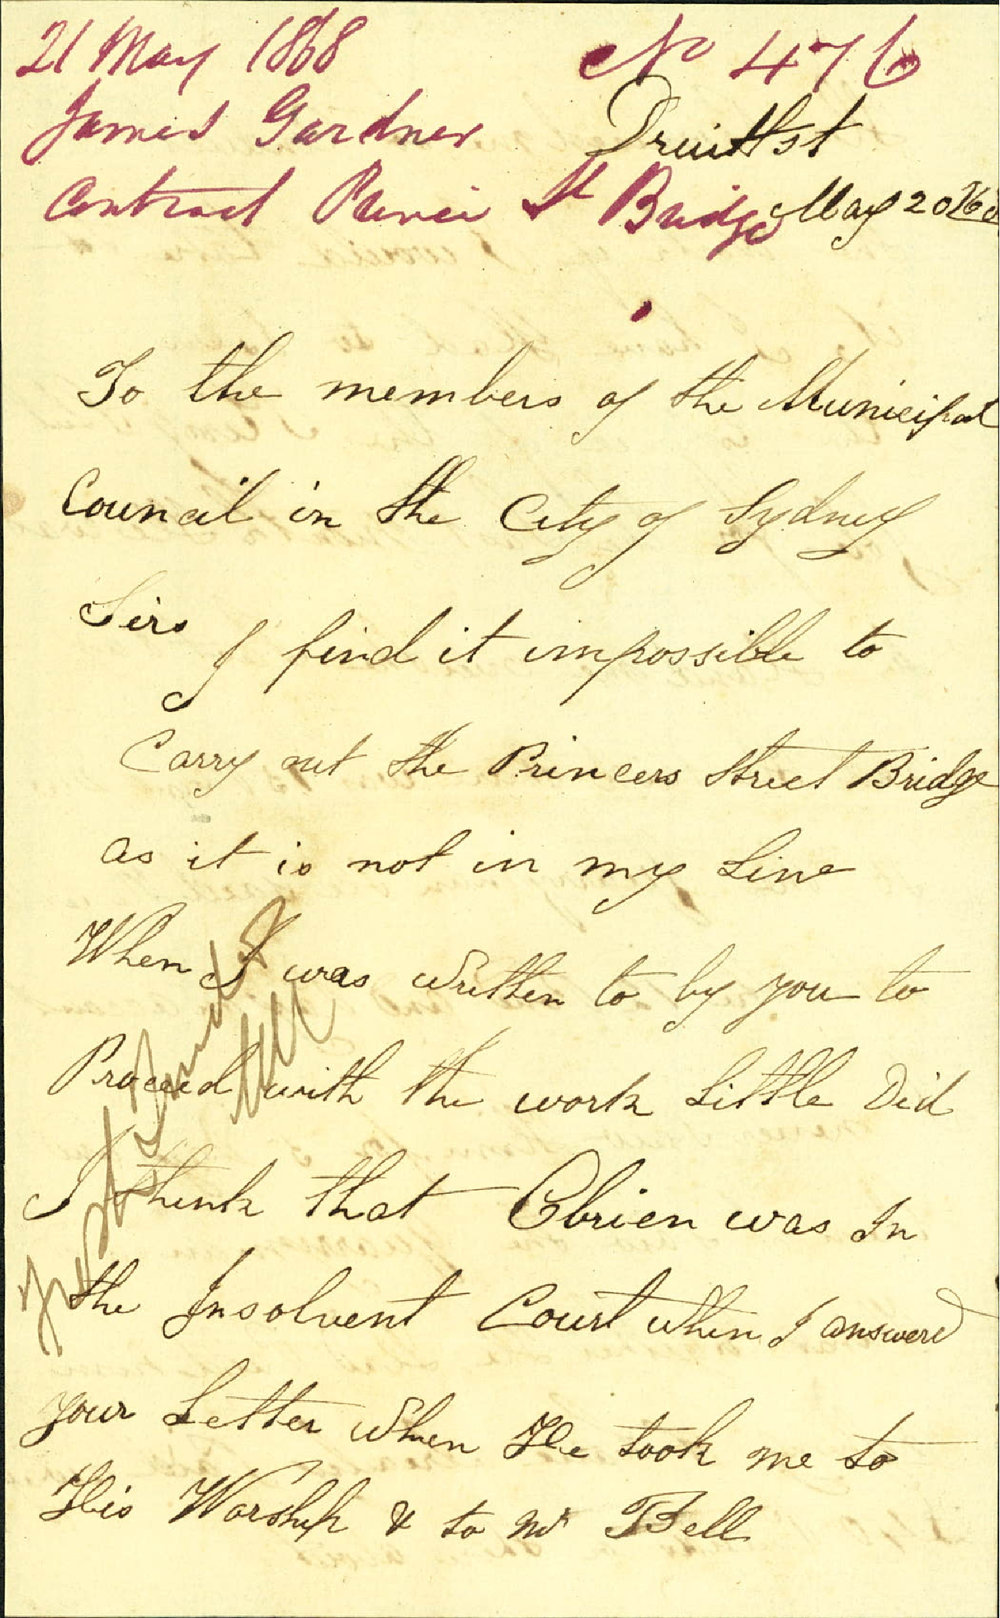 21 May 1868
No 476
James Gardner
Druitt St
Contract Princes St Bridge
May 20 1868
To the members of the Municipal
Council in the City of Sydney
Sirs I find it impossible to
Carry out the Princess Street Bridge
as it is not in my Line
When I was written to by you to
Proceed with the work Little Did
I think that Obrien was In
the Insolvent Court when I answerd
your Letter when He took me to
His Worship & to Mr Bell